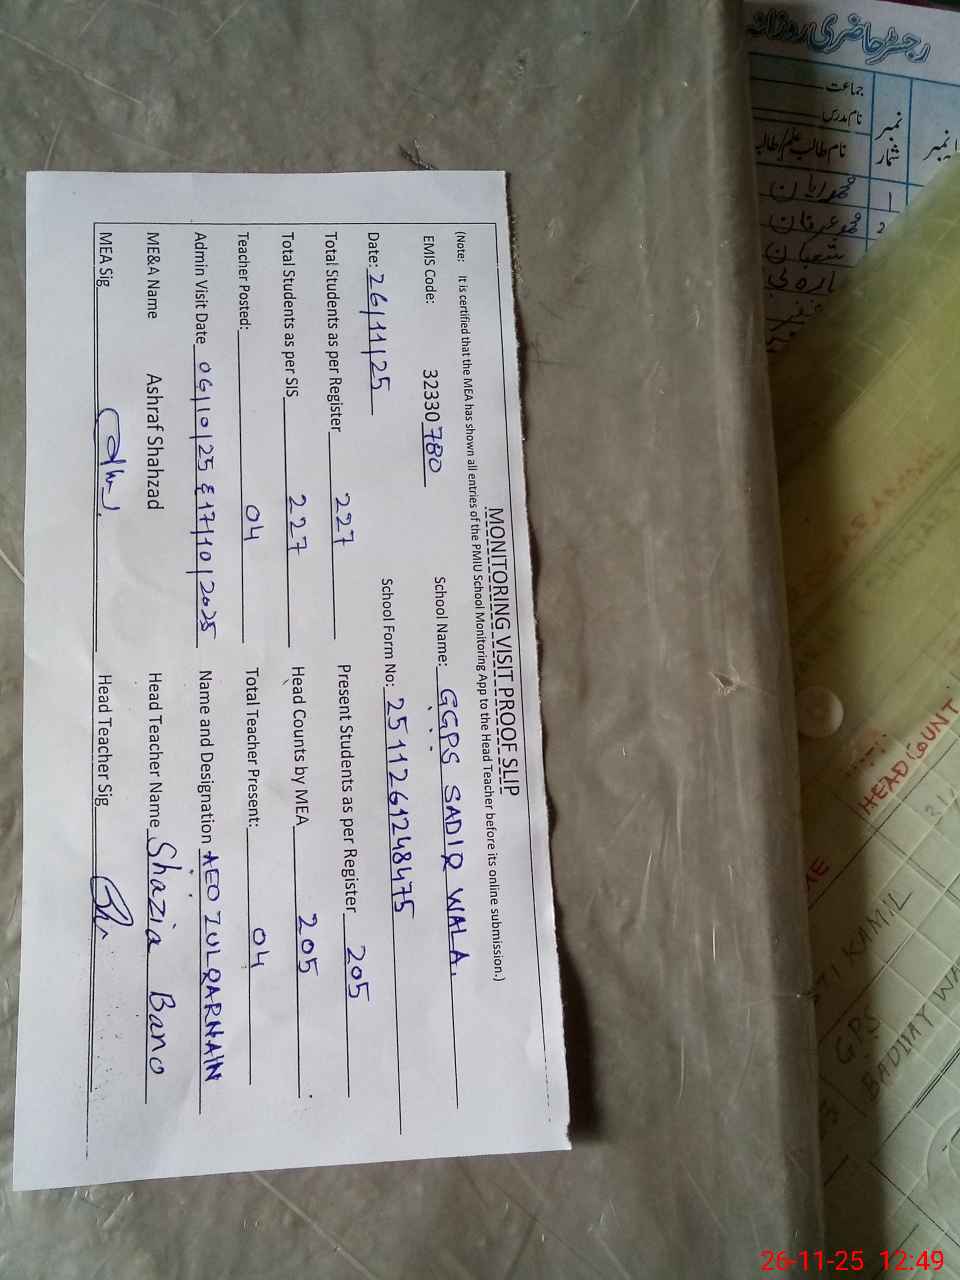 MONITORING VISIT PROOF SLIP
(Note: It is certified that the MEA has shown all entries of the PMIU School Monitoring App to the Head Teacher before its online submission.)
EMIS Code: 32330780 School Name: GGPS SADIQ WALA.
Date: 26/11/25 School Form No: 2511261248475
Total Students as per Register 227 Present Students as per Register 205
Total Students as per SIS 227 Head Counts by MEA 205
Teacher Posted: 04 Total Teacher Present: 04
Admin Visit Date 06/10/25 & 17/10/2025 Name and Designation AEO ZULQARNAIN
ME&A Name Ashraf Shahzad Head Teacher Name Shazia Bano
MEA Sig Head Teacher Sig
رجسٹر حاضری روزانہ
جماعت
نام مدرس
نمبر شمار
نام طالب علم/طالبہ
1 محمد ریان
2 محمد عرفان
شعبان
HEAD COUNT
KAMIL
GPS
BADLIAY WA
26-11-25 12:49